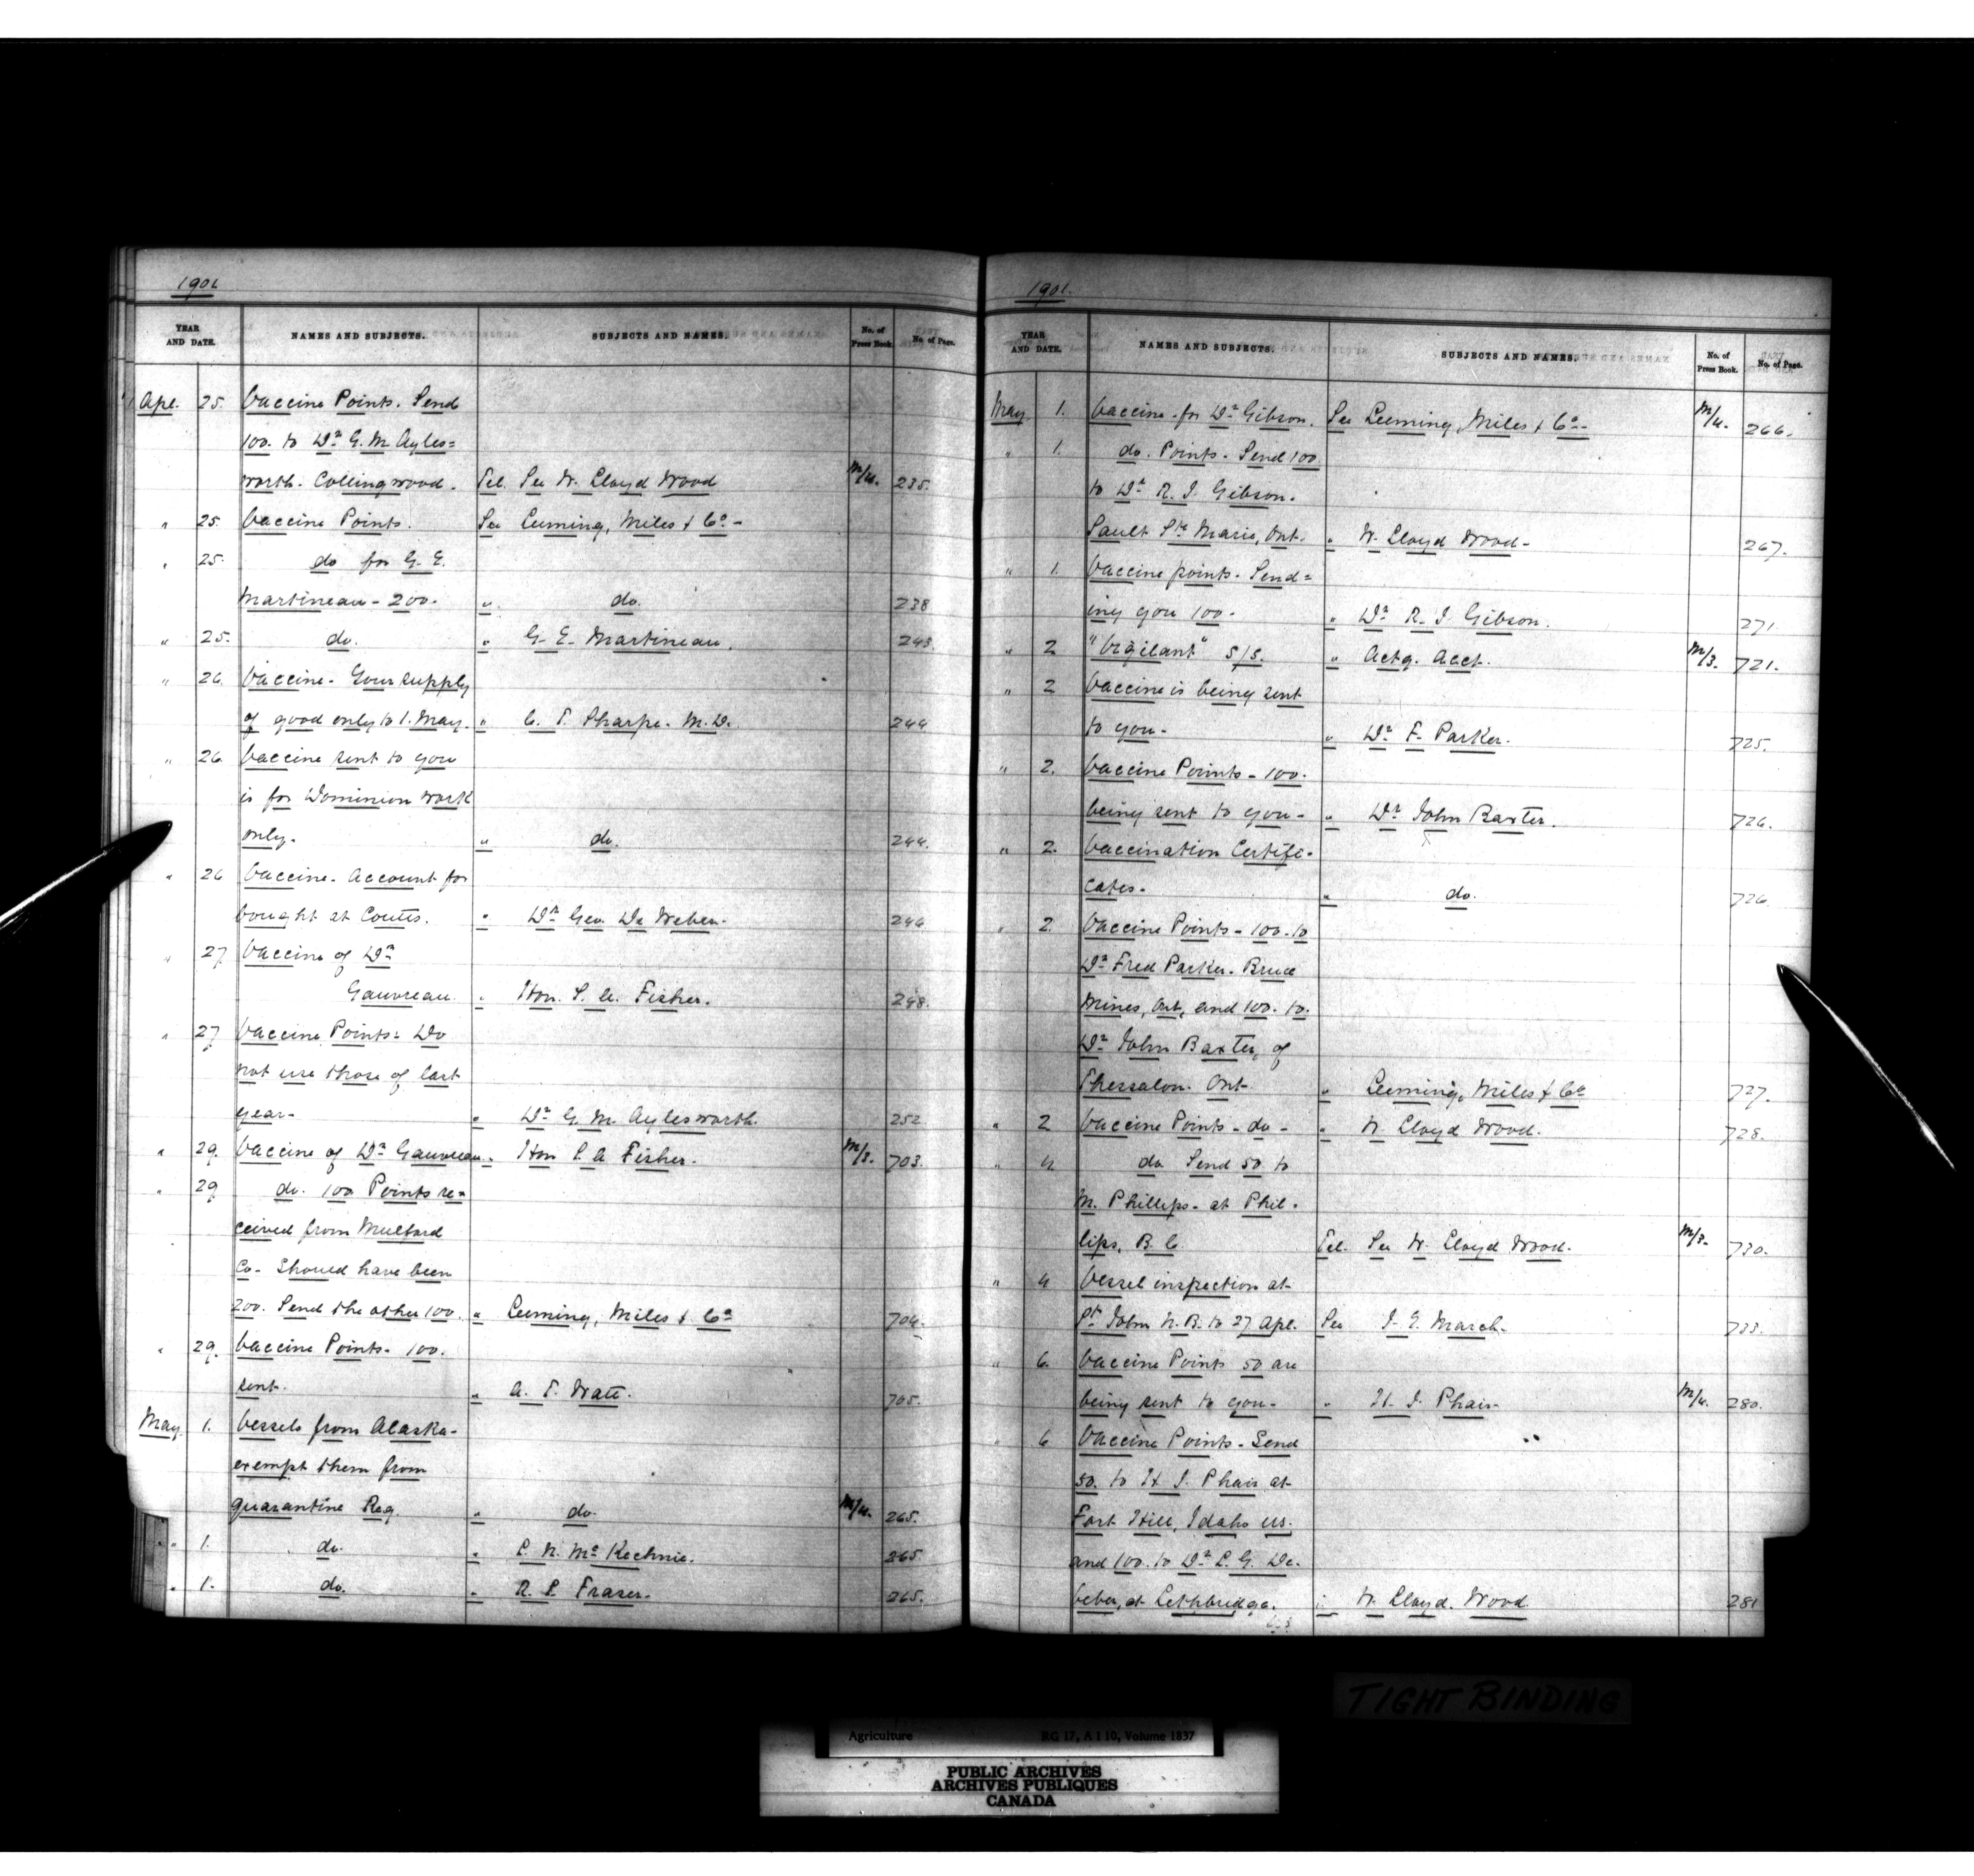 1901
YEAR AND DATE. NAMES AND SUBJECTS. SUBJECTS AND NAMES. No. of Press Book. No. of Page.
Apl. 25. Vaccine Points. Send
100. to Dr. G. M. Ayles=
worth. Collingwood. Tel. See W. Lloyd Wood M/4. 235.
" 25. Vaccine Points. See Leeming, Miles & Co -
" 25. do for G. E.
Martineau - 200. " do. 238
" 25. do. " G. E. Martineau. 243
" 26. Vaccine - Your supply
of good only to 1. May. " C. T. Sharpe. M. D. 244
" 26. Vaccine sent to you
is for Dominion work
only. " do. 244.
" 26 Vaccine. Account for
bought at Coutts. " Dr. Geo. De Weber. 246
" 27 Vaccine of Dr.
Gauvreau. " Hon. S. A. Fisher. 248.
" 27 Vaccine Points - Do
not use those of last
year - " Dr. G. M. Aylesworth. 252
" 29. Vaccine of Dr. Gauvreau. " Hon S. A Fisher. M/3. 703.
" 29 do. 100 Points re=
ceived from Mulford
Co - Should have been
200. Send the other 100. " Leeming, Miles & Co 704.
" 29. Vaccine Points - 100.
sent. " A. T. Watt. 705.
May 1. Vessels from Alaska -
exempt them from
quarantine Reg. " do. M/4. 265.
" 1. do. " R. McKechnie. 265
" 1. do. " R. P. Fraser. 265.
1901.
YEAR AND DATE. NAMES AND SUBJECTS. SUBJECTS AND NAMES. No. of Press Book. No. of Page.
May 1. Vaccine - for Dr. Gibson. See Leeming, Miles & Co - M/4. 266.
" 1. do. Points - Send 100
to Dr. R. J. Gibson.
Sault Ste Marie, Ont. " W. Lloyd Wood - 267.
" 1. Vaccine points - Send=
ing you 100 - " Dr. R. J Gibson. 271
" 2 "Vigilant" S/S. " Actg. Acct. M/3. 721.
" 2 Vaccine is being sent
to you - " Dr. F. Parker. 725.
" 2. Vaccine Points - 100.
being sent to you - " Dr. John Baxter. 726.
" 2. Vaccination Certifi-
cates. " do. 726
" 2. Vaccine Points - 100. to
Dr. Fred Parker. Bruce
Mines, Ont, and 100. to.
Dr. John Baxter, of
Thessalon. Ont. " Leeming, Miles & Co 727.
" 2 Vaccine Points - do - " W. Lloyd Wood. 728.
" 4. do Send 50 to
M. Phillips - at Phil-
lips, B. C. Tel. See W. Lloyd Wood. M/3. 730.
" 4 Vessel inspection at
St John N. B. to 27 Apl. See J. E. March. 733.
" 6. Vaccine Points 50 are
being sent to you - " H. J. Phair. M/4. 280.
" 6 Vaccine Points - Send
50. to H J. Phair at
Fort Hill, Idaho U.S.
and 100. to Dr. L. G. De
Veber, at Lethbridge. " W. Lloyd. Wood 281
TIGHT BINDING
Agriculture RG 17, A I 10, Volume 1837
PUBLIC ARCHIVES
ARCHIVES PUBLIQUES
CANADA